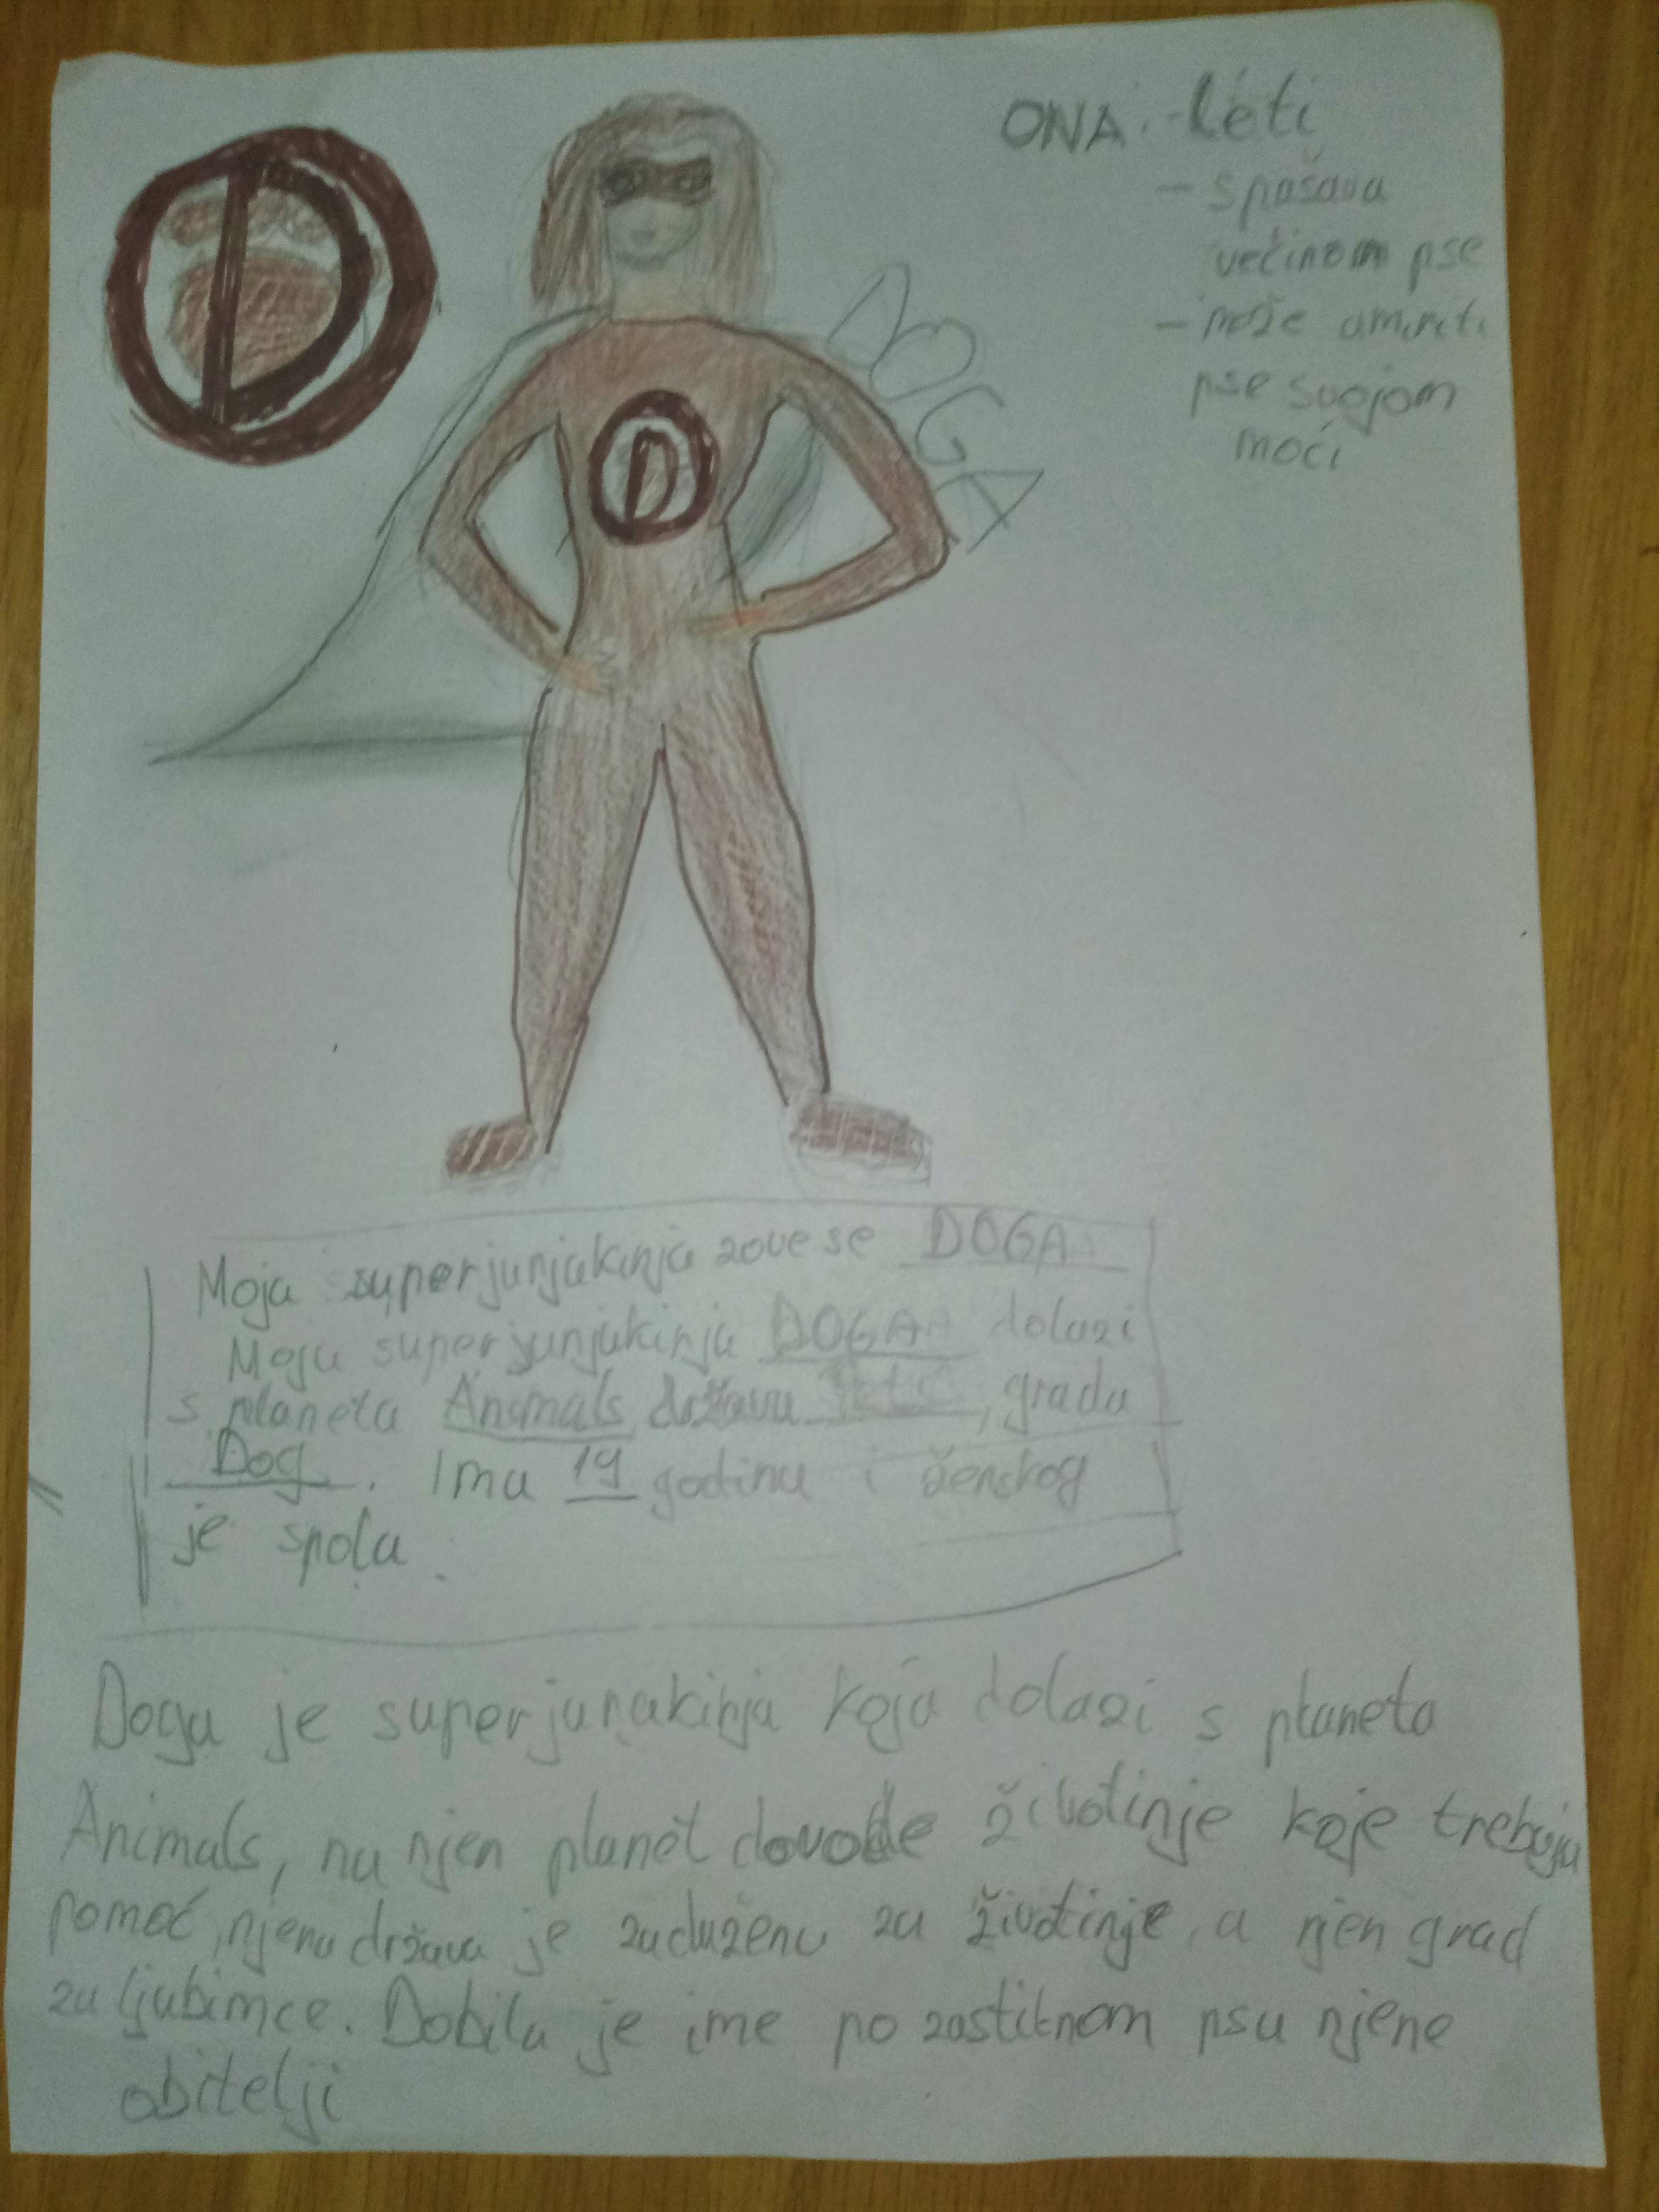 D
D
DOGA
ONA: - leti
- spašava
većinom pse
- može umiriti
pse svojom
moći
Moja superjunjakinja zove se DOGA
Moja superjunjakinja DOGA dolazi
s planeta Animals država, grada
Dog. Ima 19 godina i ženskog
je spola.
Doga je superjunakinja koja dolazi s planeta
Animals, na njen planet dovode životinje koje trebaju
pomoć, njena država je zadužena za životinje, a njen grad
za ljubimce. Dobila je ime po zastitnom psu njene
obitelji